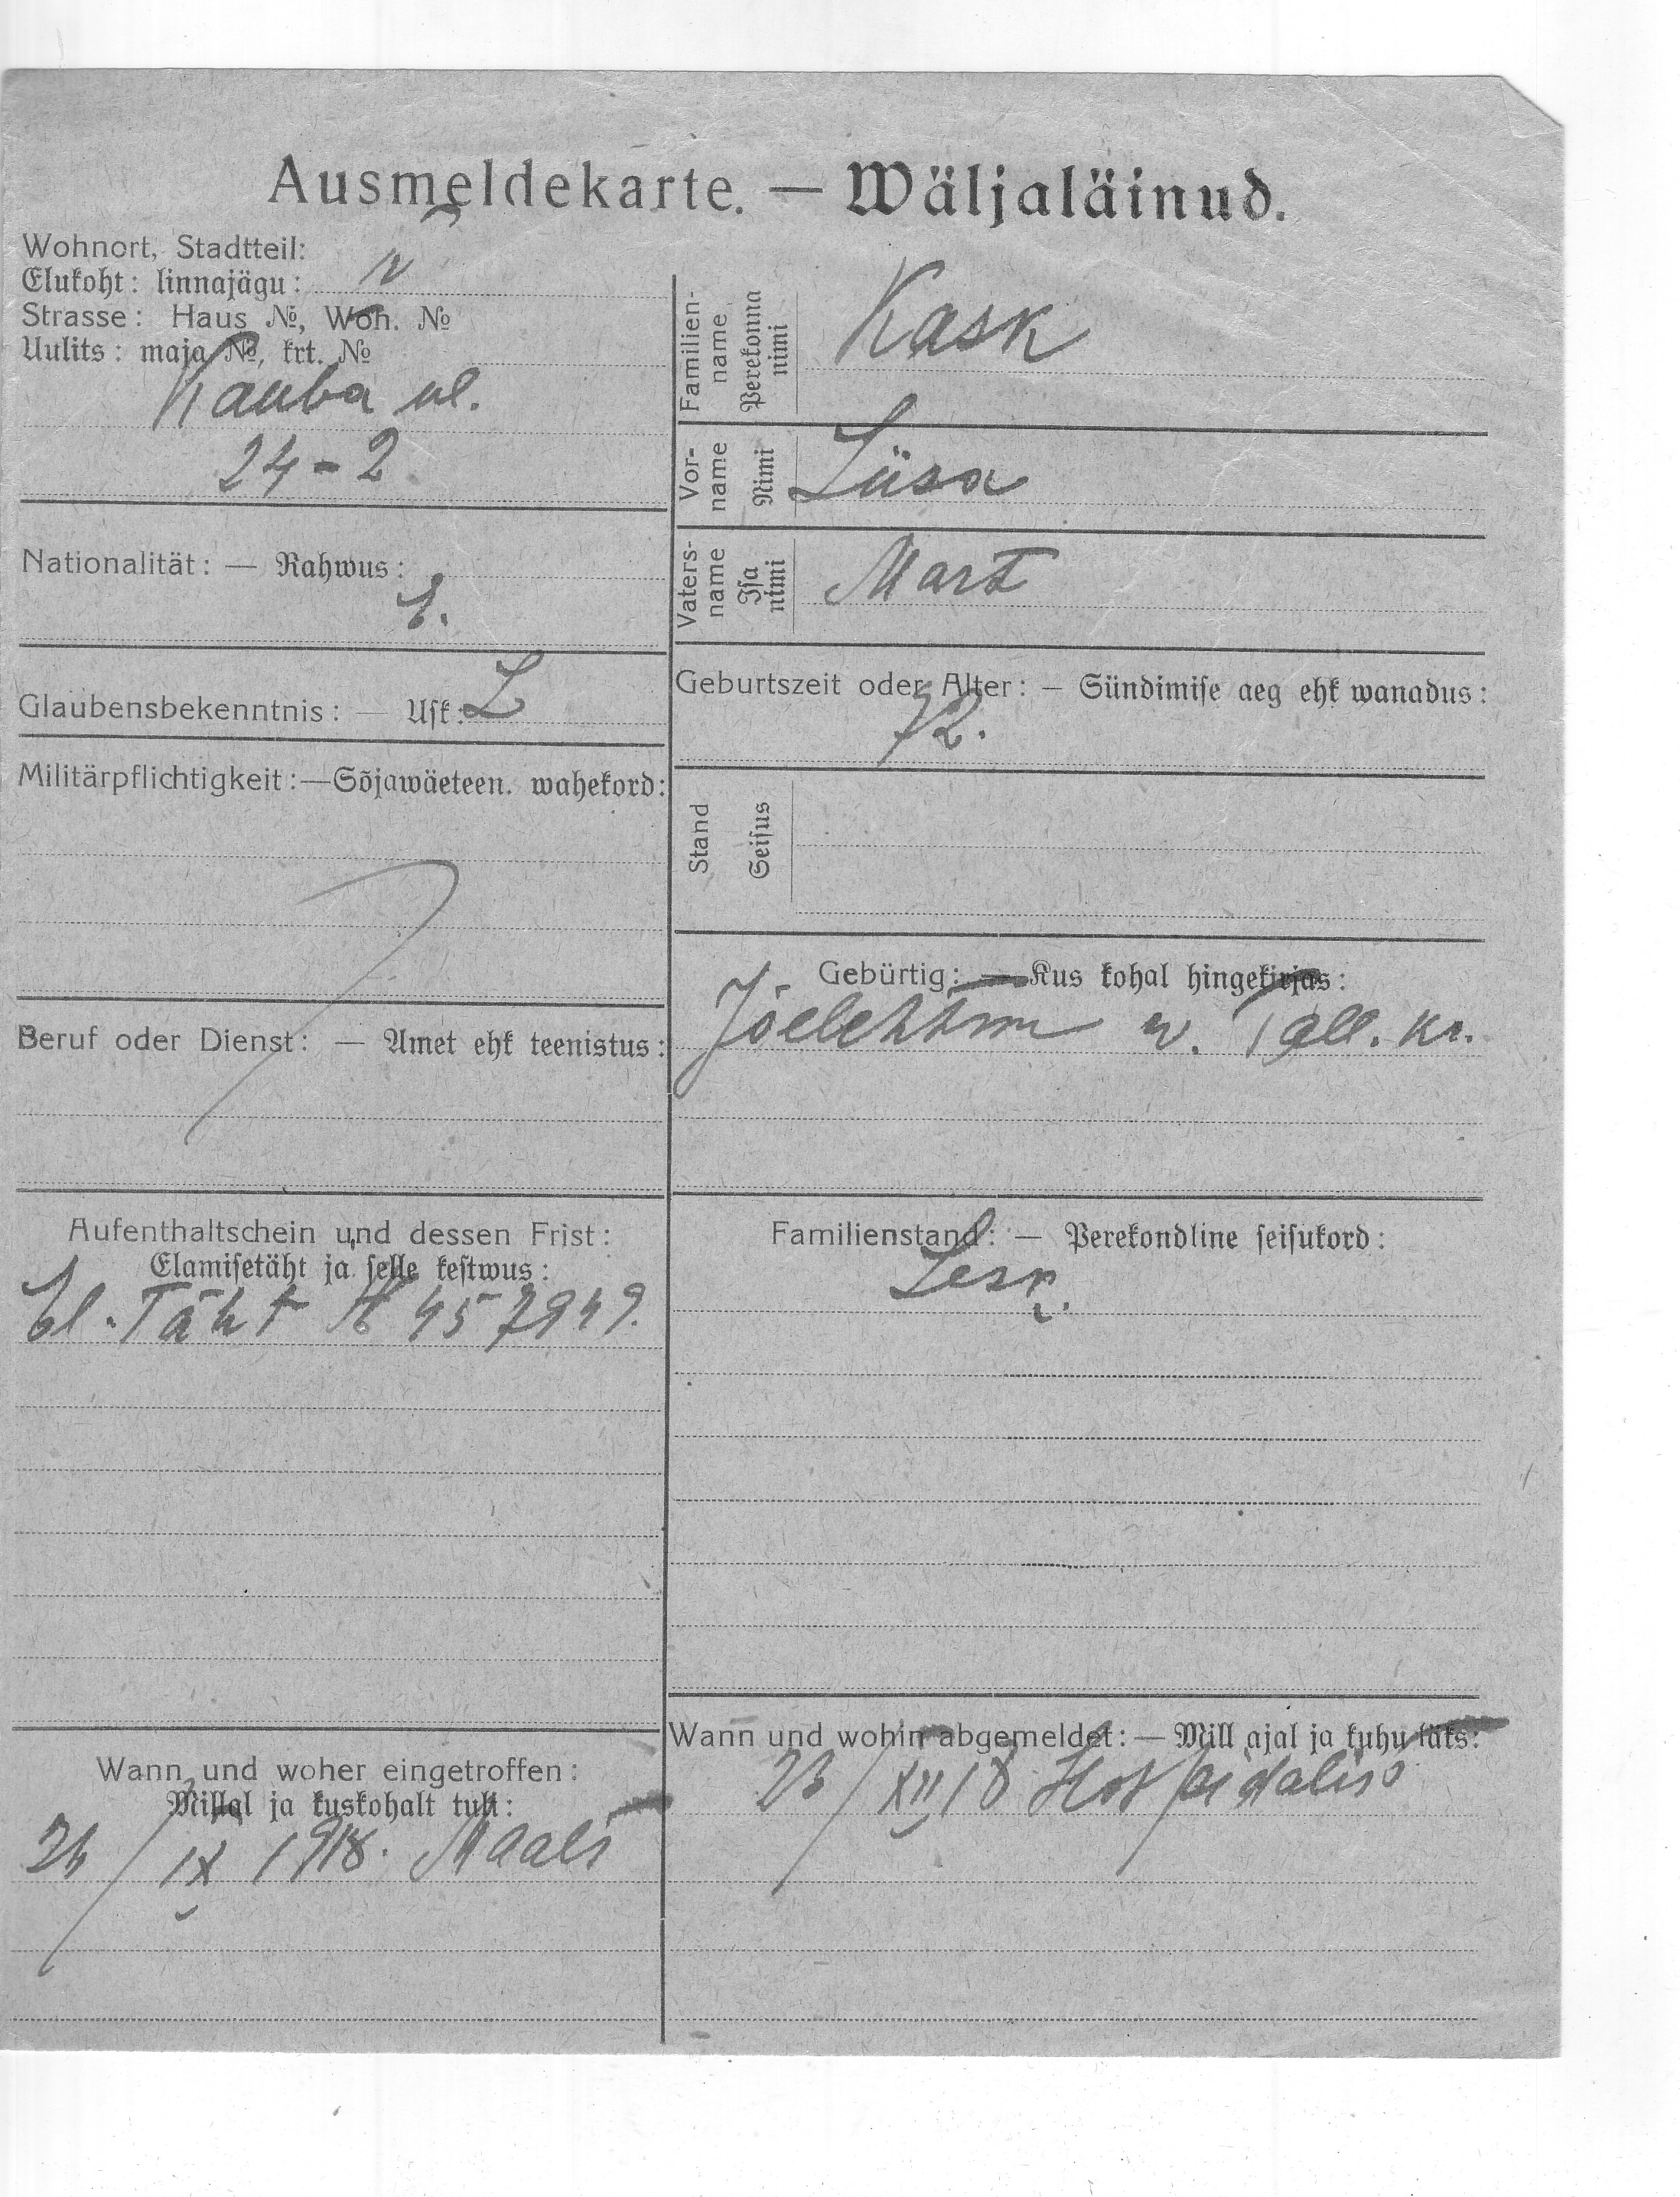 Ausmeldekarte. — Wäljaläinud.
Wohnort, Stadtteil:
Elukoht: linnajägu: IV
Strasse: Haus №, Woh. №
Uulits: maja №, krt. №
Kauba ul.
24-2.
Nationalität: — Rahwus:
E.
Glaubensbekenntnis: — Usk: L
Militärpflichtigkeit: — Sõjawäeteen. wahekord:
Beruf oder Dienst: — Amet ehk teenistus:
Aufenthaltschein und dessen Frist:
Elamisetäht ja selle kestwus:
El. Täht № 457949.
Wann und woher eingetroffen:
Millal ja kuskohalt tuli:
26/IX 1918. Maalt
Familienname Perekonna nimi Kask
Vorname Nimi Liisa
Vatersname Isa nimi Mart
Geburtszeit oder Alter: — Sündimise aeg ehk wanadus:
72.
Stand Seisus
Gebürtig: — Kus kohal hingekirjas:
Jõelehtme w. Tall. kr.
Familienstand: — Perekondline seisukord:
Lesk.
Wann und wohin abgemeldet: — Mill ajal ja kuhu läks:
/XII 18